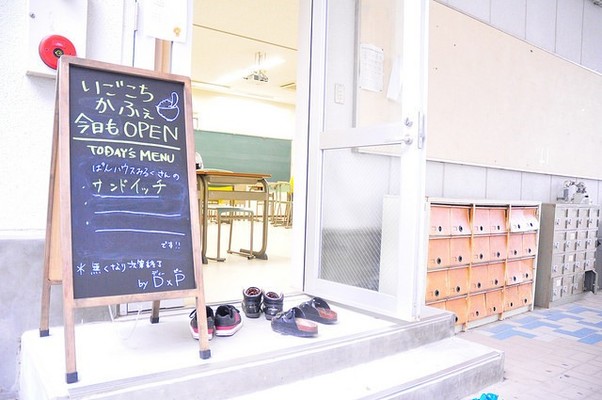 いごこち
かふぇ
今日もOPEN
TODAY'S MENU
ぱんハウスみるくさんの
サンドイッチ
です!!
*無くなり次第終了
by D×P